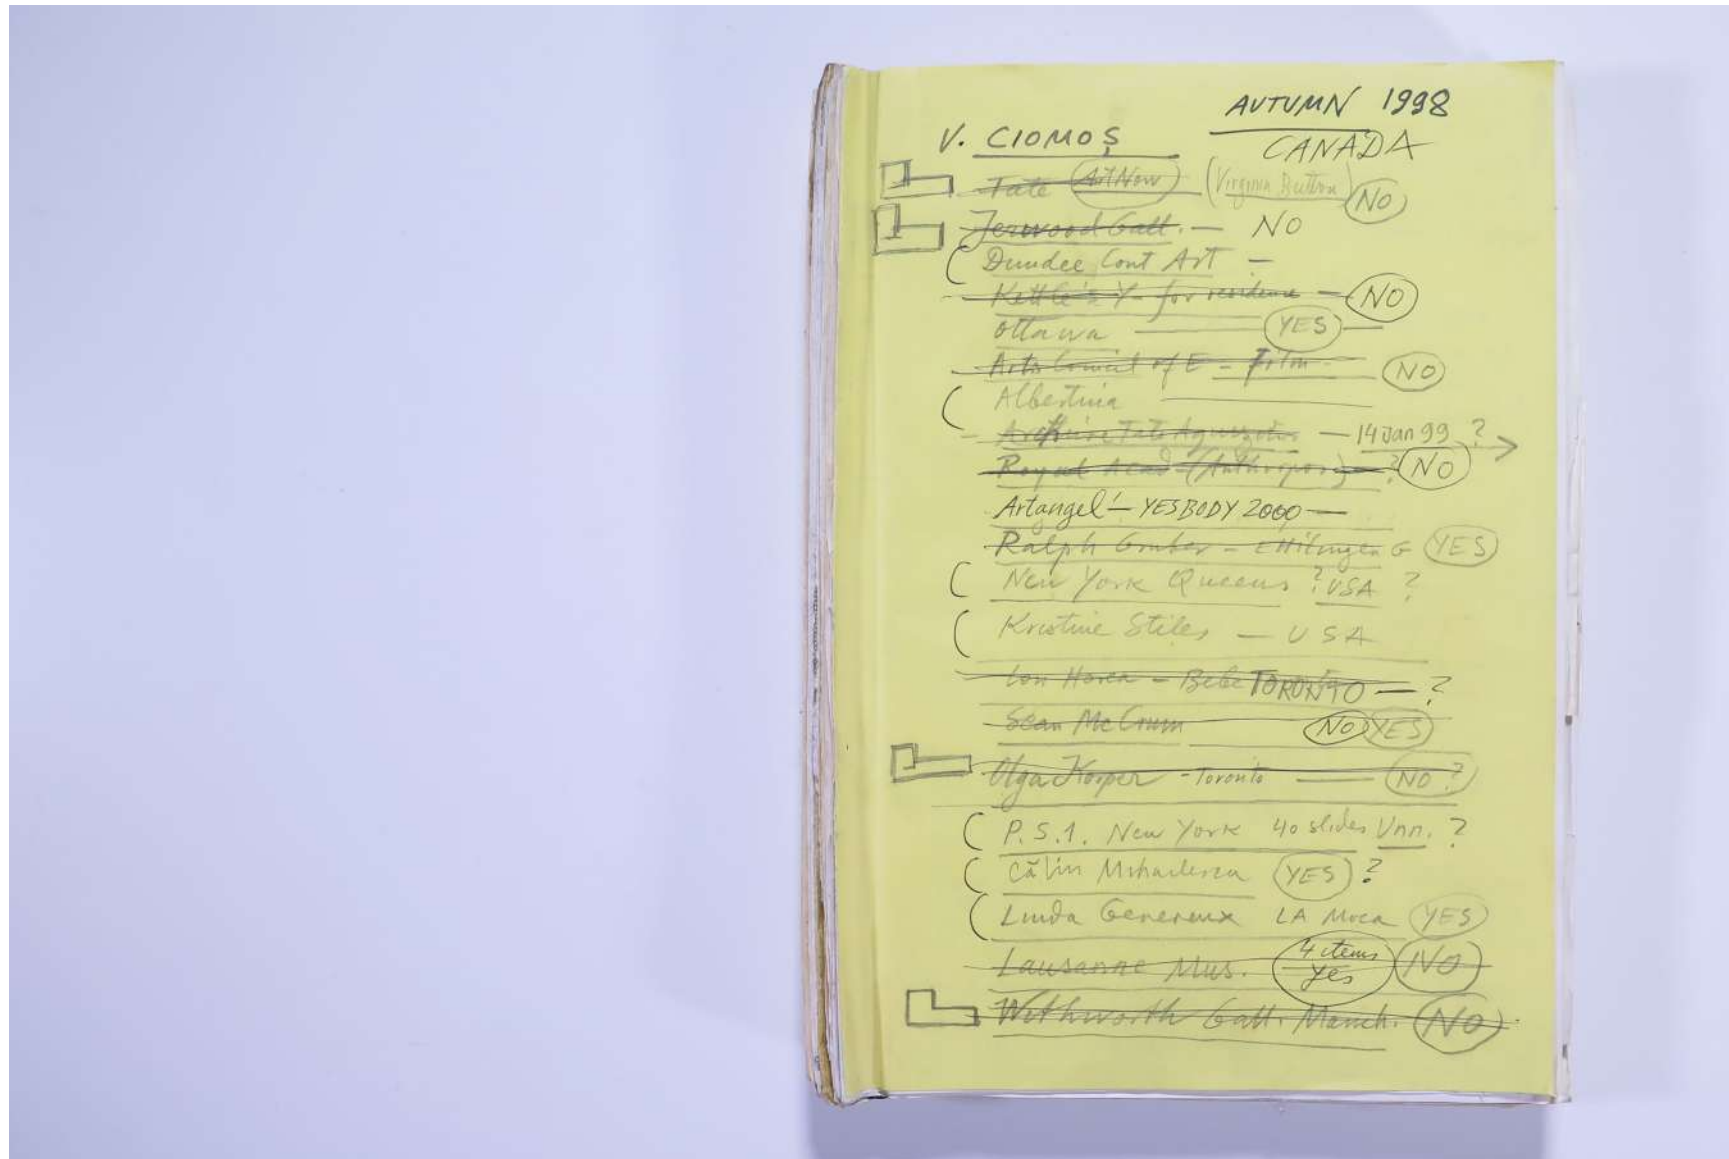 AUTUMN 1998
V. CIOMOȘ
CANADA
Tate Art Now (Virginia Button) NO
Jerwood Gall. — NO
Dundee Cont Art —
Kettle's Y — for residence — NO
Ottawa — YES —
Arts Council of E — Film — NO
Albertina
Archive Tate — 14 Jan 99 ?
Royal Acad (Anthropos) — ? NO
Artangel — YESBODY 2000 —
Ralph Gruber — Ettlingen G YES
New York Queens ? USA ?
Kristine Stiles — USA
Ion Horea — Bebe TORONTO — ?
Sean McCrum NO YES
Olga Korper - Toronto — NO ?
P.S.1. New York 40 slides Unn. ?
Călin Mihailescu YES ?
Linda Genereux LA Moca YES
Lausanne Mus. 4 items yes NO
Withworth Gall. Manch. NO